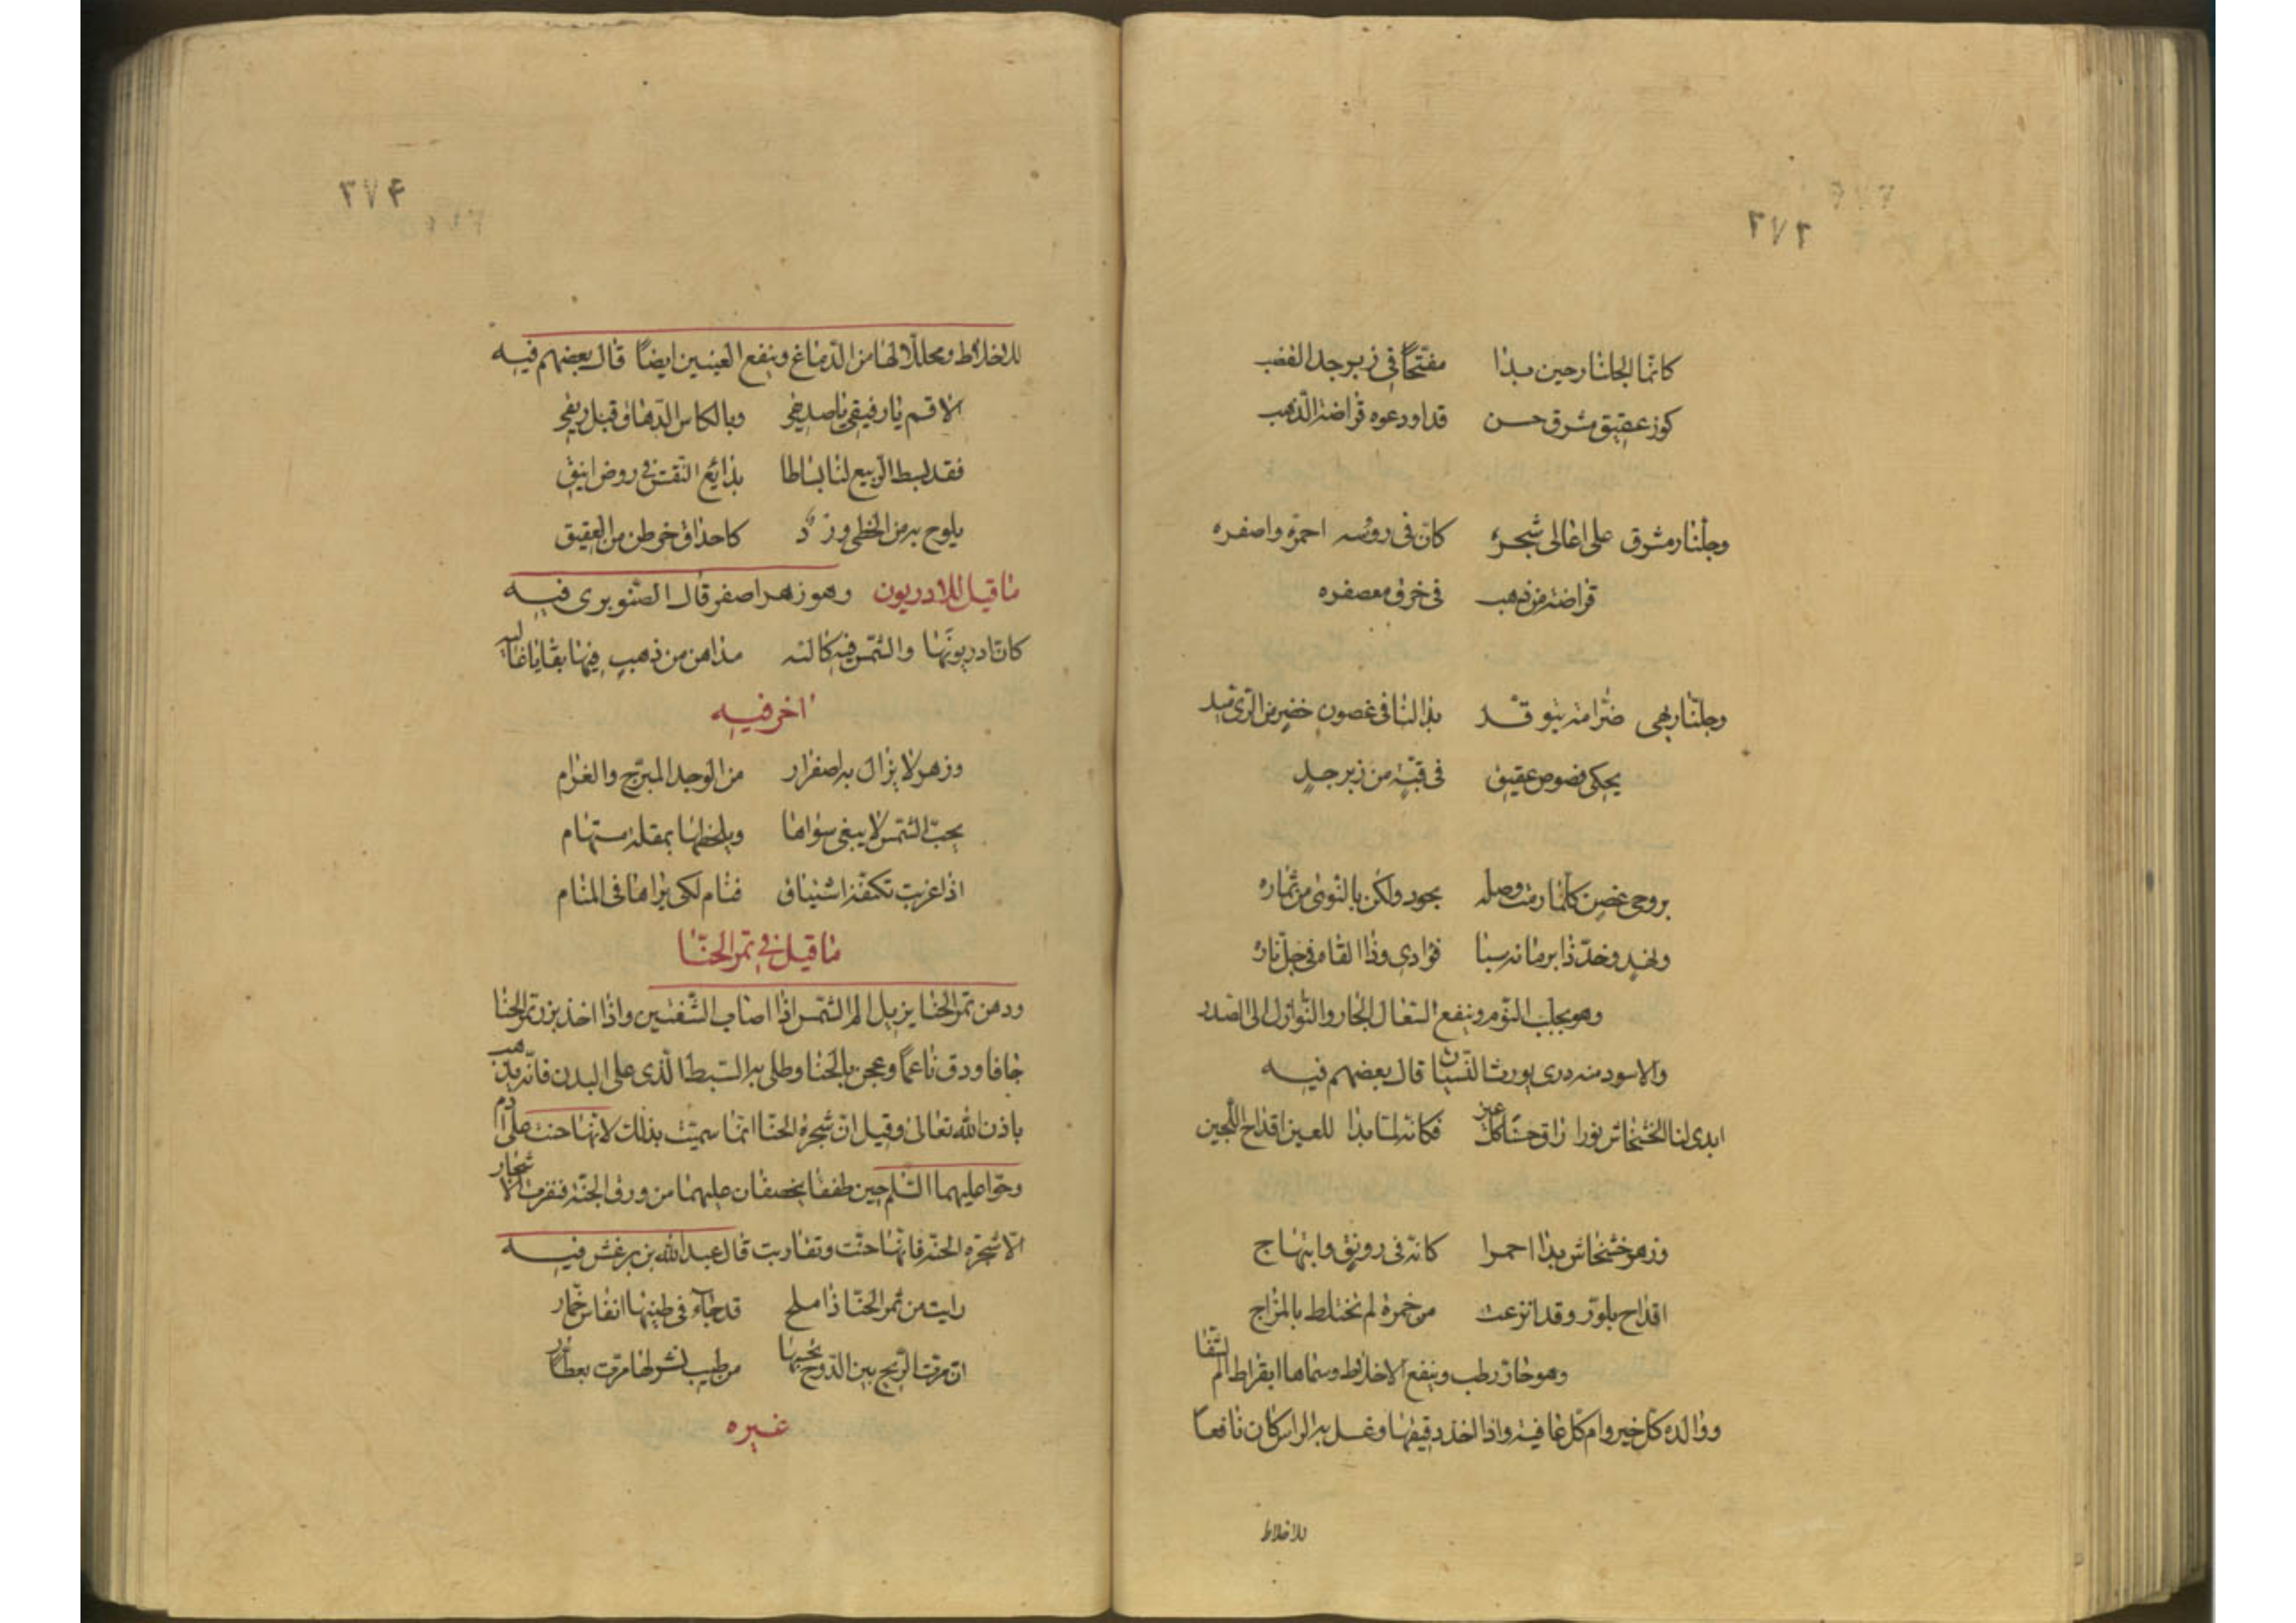 ٢٧٣
كانما الجلنار حين بدا مفتحًا في زبرجد القضب
كوز عقيق مشرق حسن قد اودعوه قراضة الذهب
وجلنار مشرق على اعالى شجره كانّ فى روسه احمره واصفره
قراضة من ذهب فى خرق معصفره
وجلنار بهى ضرامه يتوقد بدا لنا فى غصون خضر من الرى ميد
يحكى فصوص عقيق فى قبّة من زبرجدٍ
بروحى غصن كلما رمت وصله يجود ولكن بالنوى من ثماره
ونهد وخد ذا برمانه سبا فؤادى وذا القامى جلّناره
وهو يجلب النوم وينفع السعال الحار والنوازل الى الصدر
والاسود منه درى يورث النسيان قال بعضهم فيه
ابدى لنا الخشخاش نورا راق حسنا كل عين فكانه لما بدا للعين اقداح اللجين
وزهر خشخاش بدا احمرا كانه فى رونق وابتهاج
اقداح بلور وقد انزعت من خمرة لم تختلط بالمزاج
وهو حار رطب وينفع الاخلاط وسماها ابقراط ام الشفا
ووالده كل خير وام كل عافية واذا اخذ دقيقها وغسل به الراس كان نافعا
للاخلاط
٢٧۴
للاخلاط ومحللا لها من الدماغ وينفع العينين ايضاً قال بعضهم فيه
الا قم يا رفيقى يا صديقى وبالكاس الدهاق وقبل ريقى
فقد بسط الربيع لنا بساطا بدائع النقش فى روض انيق
يلوح به من الخطى ورد كاحداق خرطن من العقيق
ما قيل للادريون وهو زهر اصفر قال الصنوبرى فيه
كان ادريونها والشمس فيه كالته مداهن من ذهب فيها بقايا غاليه
اخر فيه
وزهر لا يزال به اصفرار من الوجد المبرّح والغرام
يحبّ الشمس لا يبغى سواها ويلحظها بمقلة مستهام
اذا غربت تكنفه اشتياق فنام لكى يراها فى المنام
ما قيل فى تمر الحنّا
ودهن تمر الحنا يزيل الم الشمس اذا اصاب الشفتين واذا اخذ بزر تمر الحنا
جافا ودق ناعماً وعجن بالحنا وطلى به السبط الذى على البدن فانه يذهب
باذن الله تعالى وقيل ان شجرة الحنا انما سميت بذلك لانها حنت على ادم
وحوا عليهما السلم حين طفقا يخصفان عليهما من ورق الجنة فنفرت الاشجار
الا شجرة الحنه فانها حنت وتقاربت قال عبد الله بن برغش فيه
رايت من تمر الحنا ذا ملح قد جاء فى طيبها انفاس خمار
ان مرت الريح بين الدوح تحسبها من طيب نشر لها مرت بعطار
غيره